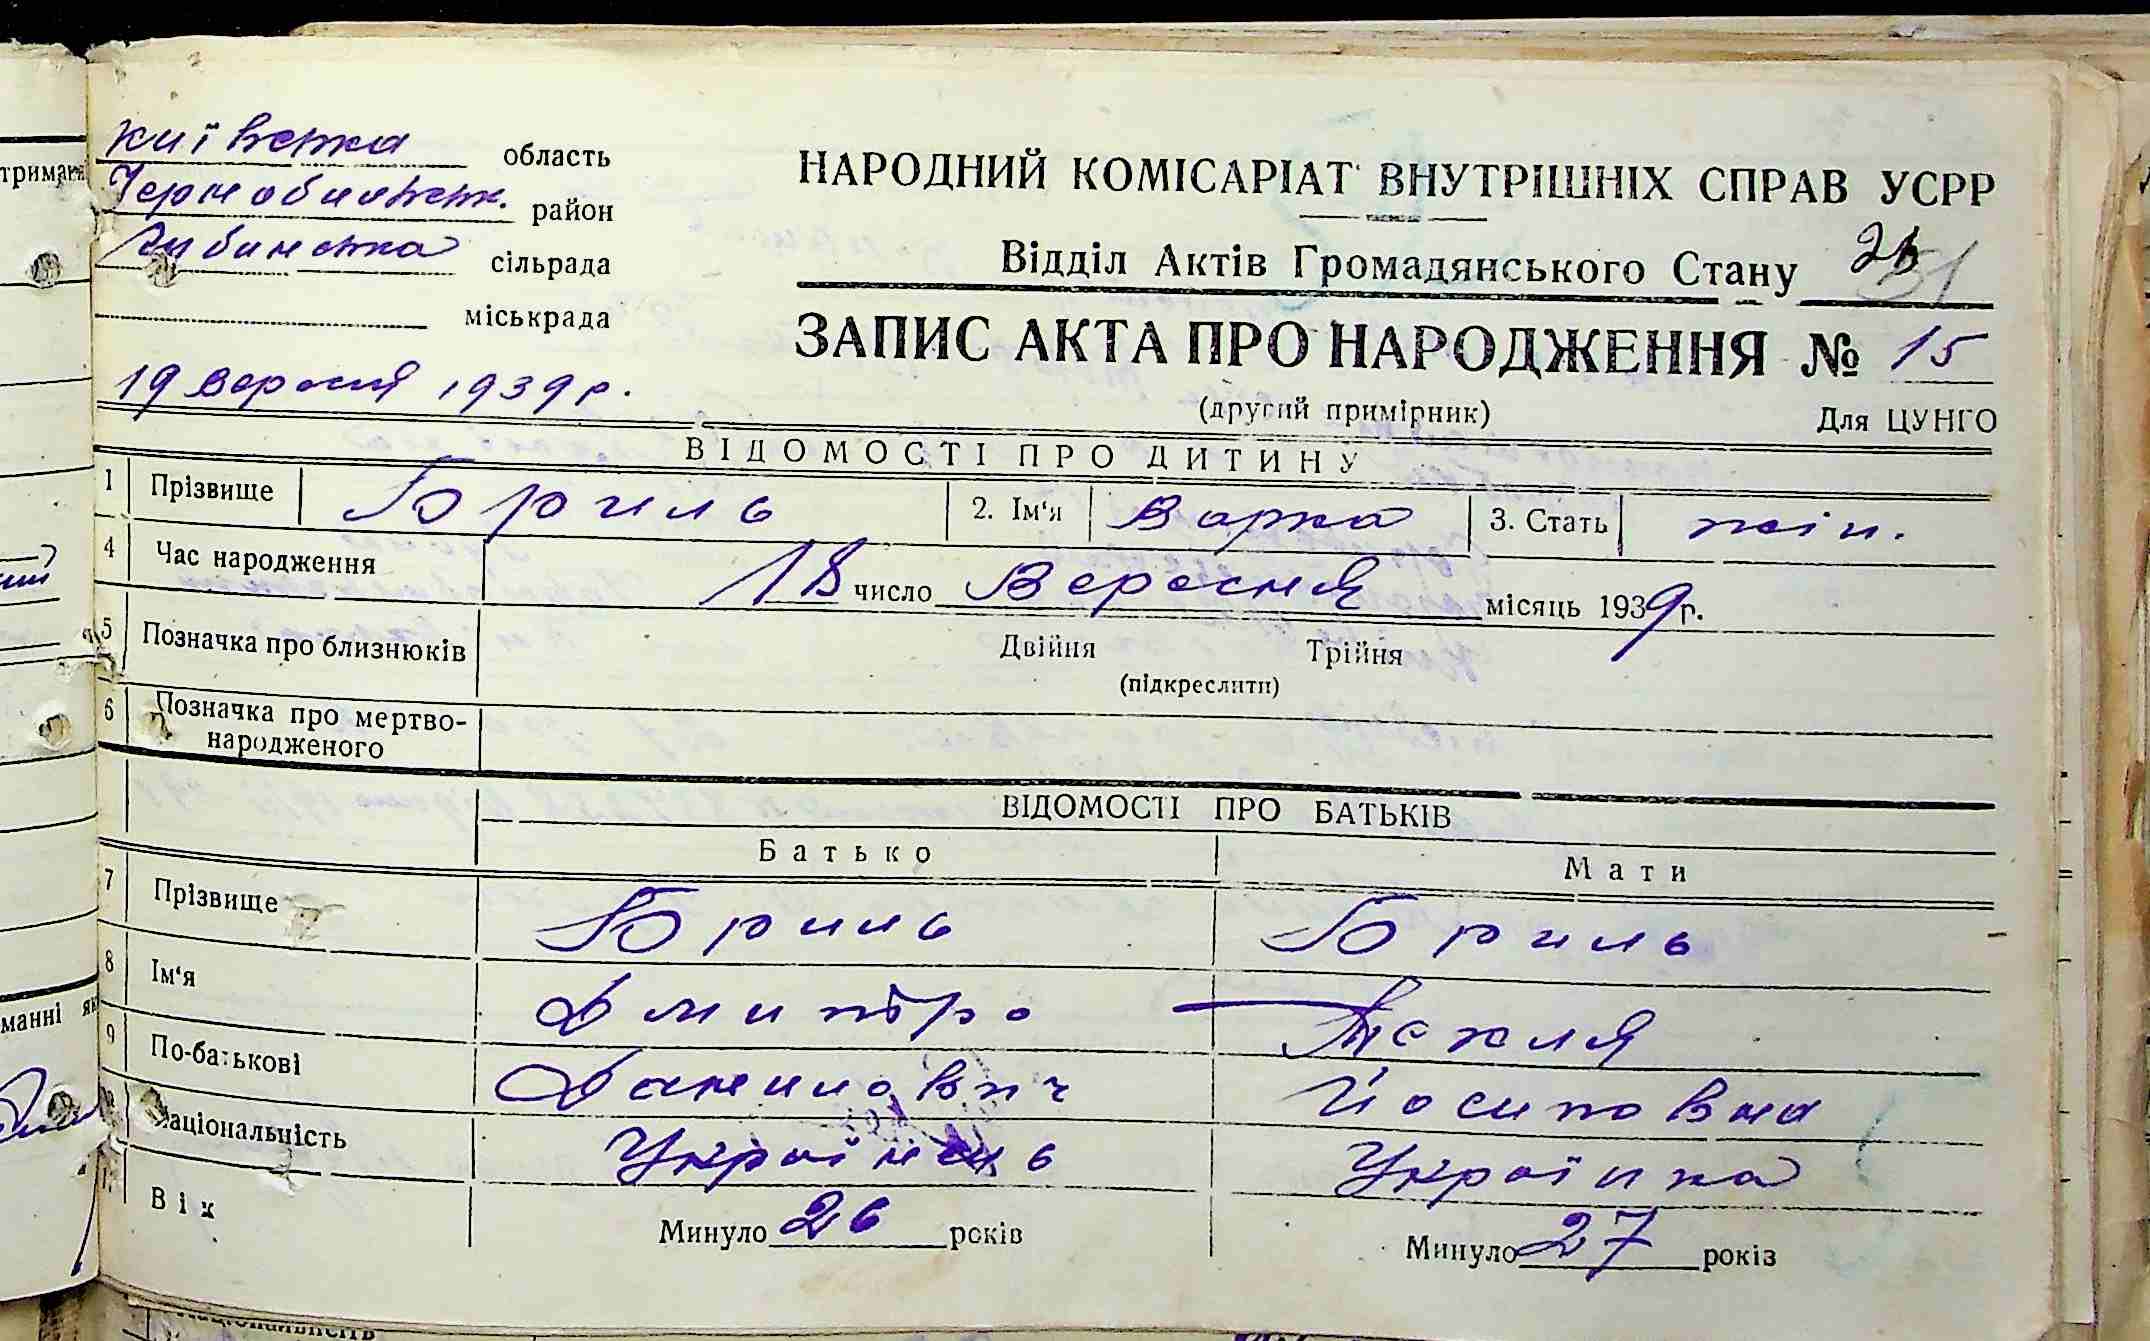 Київська область
Чорнобильськ. район
Зибинська сільрада
міськрада
19 вересня 1939 р.
НАРОДНИЙ КОМІСАРІАТ ВНУТРІШНІХ СПРАВ УСРР
Відділ Актів Громадянського Стану
ЗАПИС АКТА ПРО НАРОДЖЕННЯ № 15
(другий примірник) Для ЦУНГО
ВІДОМОСТІ ПРО ДИТИНУ
1 Прізвище Бриль 2. Ім'я Варка 3. Стать жін.
4 Час народження 18 число Вересня місяць 1939 р.
5 Позначка про близнюків Двійня Трійня
(підкреслити)
6 Позначка про мертво-
народженого
ВІДОМОСТІ ПРО БАТЬКІВ
Батько Мати
7 Прізвище Бриль Бриль
8 Ім'я Дмитро Текля
9 По-батькові Данилович Йосиповна
Національність Українець Українка
Вік Минуло 26 років Минуло 27 років